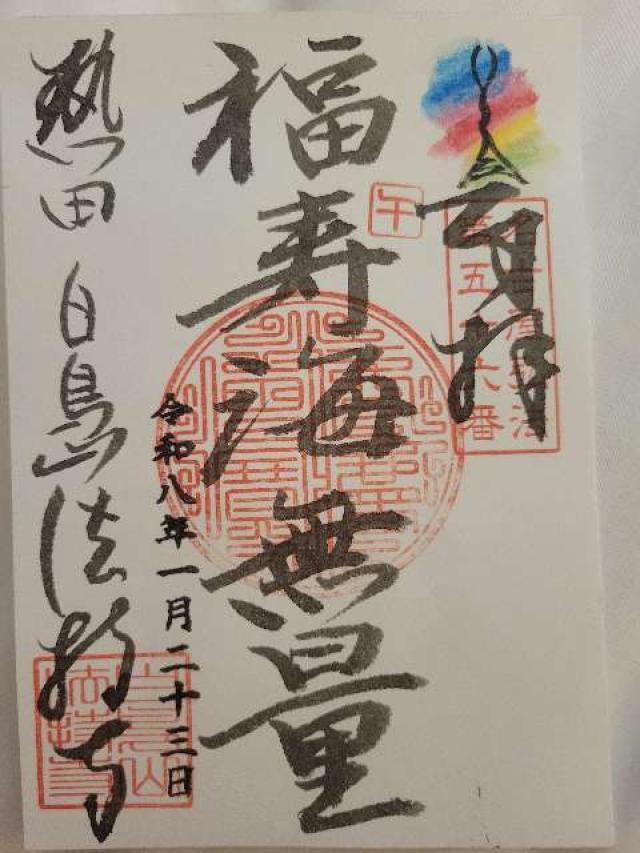 奉拝
五十六番
午
福寿海無量
令和八年一月二十三日
熱田 白鳥法持寺